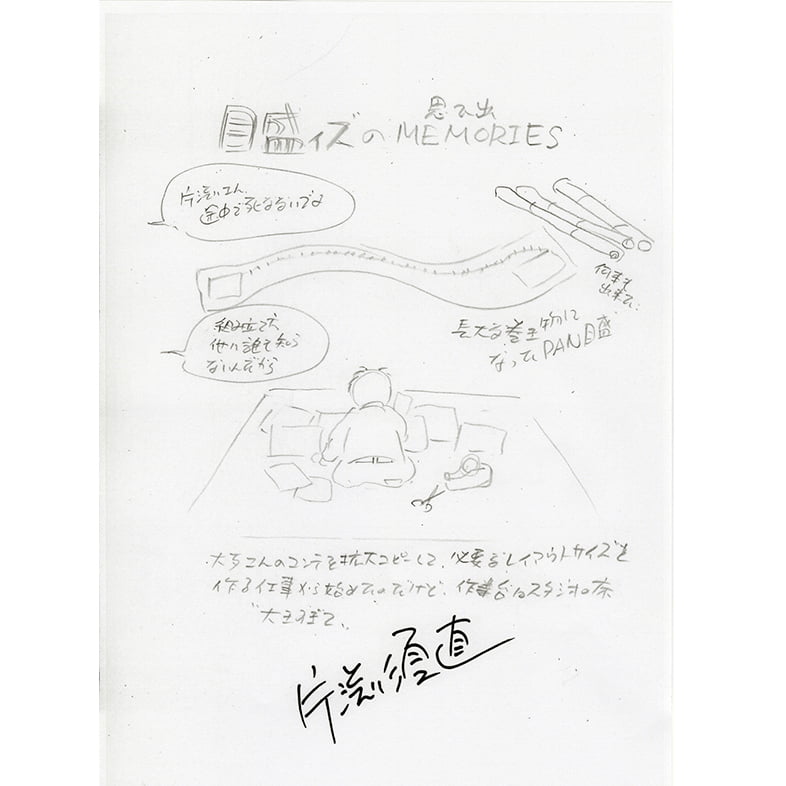 思ひ出
目盛ィズのMEMORIES
片渕さん、
途中で死なないでね
何本も
出来て…
組み立て方、
他に誰も知ら
ないんだから
長大な巻き物に
なったPAN目盛
大友さんのコンテを拡大コピーして、必要なレイアウトサイズを
作る仕事から始めたのだけど、作業台はスタジオの床
大きすぎて、
片渕須直